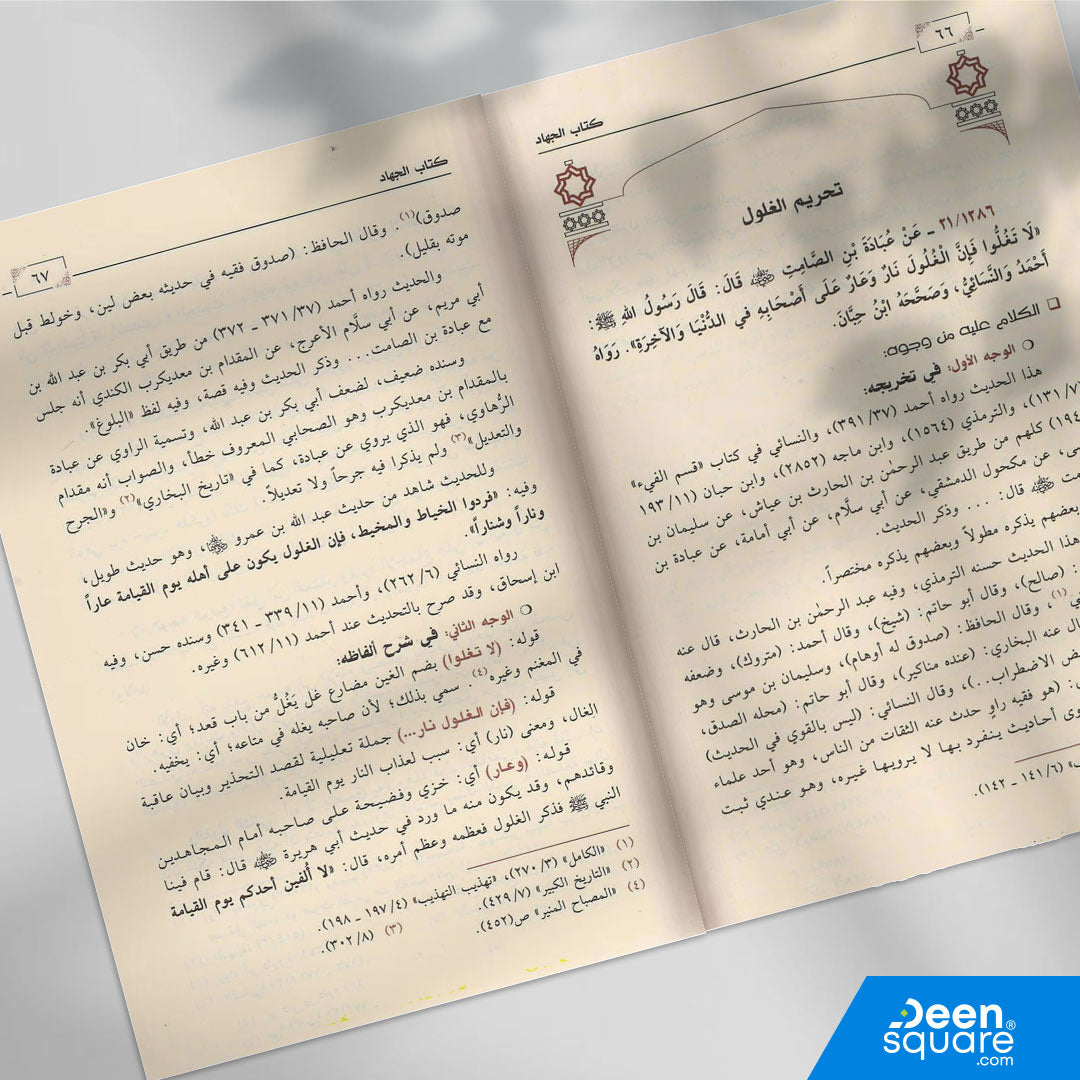 ٦٦
كتاب الجهاد
تحريم الغلول
٢١/١٢٨٦ - عَنْ عُبَادَةَ بْنِ الصَّامِتِ ﷺ قَالَ: قَالَ رَسُولُ اللهِ ﷺ:
«لَا تَغُلُّوا فَإِنَّ الْغُلُولَ نَارٌ وَعَارٌ عَلَى أَصْحَابِهِ فِي الدُّنْيَا وَالْآخِرَةِ». رَوَاهُ
أَحْمَدُ وَالنَّسَائِيُّ، وَصَحَّحَهُ ابْنُ حِبَّانَ.
الكلام عليه من وجوه:
الوجه الأول: في تخريجه:
هذا الحديث رواه أحمد (٣٩١/٣٧)، والنسائي في كتاب «قسم الفيء»
(١٣١/٧)، والترمذي (١٥٦٤)، وابن ماجه (٢٨٥٢)، وابن حبان (١٩٣/١١
كلهم من طريق عبد الرحمٰن بن الحارث بن عياش، عن سليمان بن
عن مكحول الدمشقي، عن أبي سلَّام، عن أبي أمامة، عن عبادة بن
قال: .... وذكر الحديث.
بعضهم يذكره مطولاً وبعضهم يذكره مختصراً.
هذا الحديث حسنه الترمذي، وفيه عبد الرحمٰن بن الحارث، قال عنه
: (صالح)، وقال أبو حاتم: (شيخ)، وقال أحمد: (متروك)، وضعفه
(١)، وقال الحافظ: (صدوق له أوهام)، وسليمان بن موسى وهو
ال عنه البخاري: (عنده مناكير)، وقال أبو حاتم: (محله الصدق،
ض الاضطراب..)، وقال النسائي: (ليس بالقوي في الحديث)
: (هو فقيه راوٍ حدث عنه الثقات من الناس، وهو أحد علماء
وى أحاديث ينفرد بها لا يرويها غيره، وهو عندي ثبت
(١٤١/٦ - ١٤٢).
كتاب الجهاد
٦٧
صدوق)(١). وقال الحافظ: (صدوق فقيه في حديثه بعض لين، وخولط قبل
موته بقليل).
والحديث رواه أحمد (٣٧١/٣٧ - ٣٧٢) من طريق أبي بكر بن عبد الله بن
أبي مريم، عن أبي سلَّام الأعرج، عن المقدام بن معديكرب الكندي أنه جلس
مع عبادة بن الصامت... وذكر الحديث وفيه قصة، وفيه لفظ «البلوغ».
وسنده ضعيف، لضعف أبي بكر بن عبد الله، وتسمية الراوي عن عبادة
بالمقدام بن معديكرب وهو الصحابي المعروف خطأ، والصواب أنه مقدام
الرُّهاوي، فهو الذي يروي عن عبادة، كما في «تاريخ البخاري»(٢) و«الجرح
والتعديل»(٣) ولم يذكرا فيه جرحاً ولا تعديلاً.
وللحديث شاهد من حديث عبد الله بن عمرو ﷺ، وهو حديث طويل،
وفيه: «فردوا الخياط والمخيط، فإن الغلول يكون على أهله يوم القيامة عاراً
وناراً وشناراً».
رواه النسائي (٢٦٢/٦)، وأحمد (٣٣٩/١١ - ٣٤١) وسنده حسن، وفيه
ابن إسحاق، وقد صرح بالتحديث عند أحمد (٦١٢/١١) وغيره.
الوجه الثاني: في شرح ألفاظه:
قوله: (لا تغلوا) بضم الغين مضارع غل يَغُلُّ من باب قعد؛ أي: خان
في المغنم وغيره(٤). سمي بذلك؛ لأن صاحبه يغله في متاعه؛ أي: يخفيه.
قوله: (فإن الغلول نار...) جملة تعليلية لقصد التحذير وبيان عاقبة
الغال، ومعنى (نار) أي: سبب لعذاب النار يوم القيامة.
قوله: (وعار) أي: خزي وفضيحة على صاحبه أمام المجاهدين
وقائدهم، وقد يكون منه ما ورد في حديث أبي هريرة ﷺ قال: قام فينا
النبي ﷺ فذكر الغلول فعظمه وعظم أمره، قال: «لا أُلفين أحدكم يوم القيامة
(١) «الكامل» (٢٧٠/٣)، «تهذيب التهذيب» (١٩٧/٤ - ١٩٨).
(٢) «التاريخ الكبير» (٤٢٩/٧). (٣) (٣٠٢/٨).
(٤) «المصباح المنير» ص(٤٥٢).
Deen
square®
.com